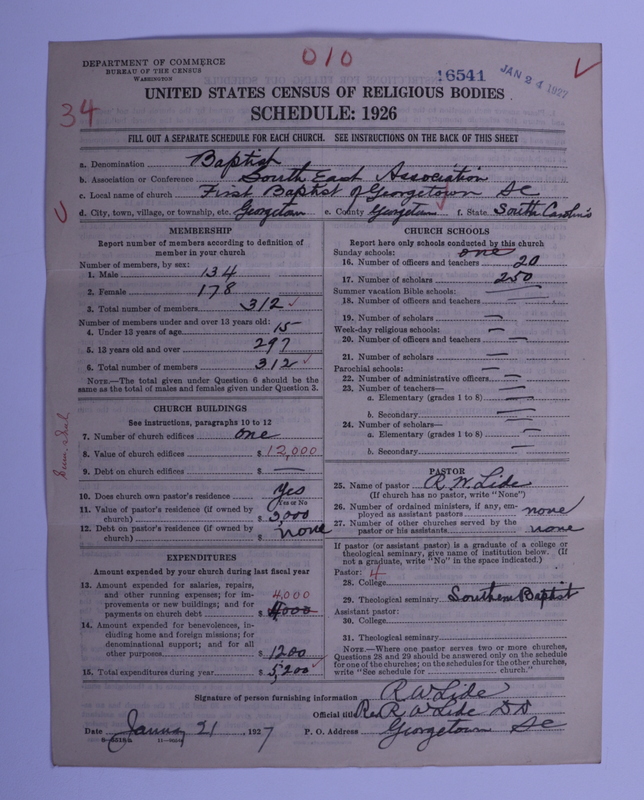 DEPARTMENT OF COMMERCE
BUREAU OF THE CENSUS
WASHINGTON
010
16541
JAN 24 1927
34
UNITED STATES CENSUS OF RELIGIOUS BODIES
SCHEDULE: 1926
FILL OUT A SEPARATE SCHEDULE FOR EACH CHURCH. SEE INSTRUCTIONS ON THE BACK OF THIS SHEET
a. Denomination Baptist
b. Association or Conference South East Association
c. Local name of church First Baptist of Georgetown SC
d. City, town, village, or township, etc. Georgetown e. County Georgetown f. State South Carolina
MEMBERSHIP
Report number of members according to definition of
member in your church
Number of members, by sex:
1. Male 134
2. Female 178
3. Total number of members 312
Number of members under and over 13 years old:
4. Under 13 years of age 15
5. 13 years old and over 297
6. Total number of members 312
NOTE.—The total given under Question 6 should be the
same as the total of males and females given under Question 3.
CHURCH BUILDINGS
See instructions, paragraphs 10 to 12
7. Number of church edifices one
8. Value of church edifices $ 12,000
9. Debt on church edifices $ —
10. Does church own pastor's residence Yes
Yes or No
11. Value of pastor's residence (if owned by
church) $ 3,000
12. Debt on pastor's residence (if owned by
church) $ none
EXPENDITURES
Amount expended by your church during last fiscal year
13. Amount expended for salaries, repairs,
and other running expenses; for im-
provements or new buildings; and for
payments on church debt $ 4,000 4000
14. Amount expended for benevolences, in-
cluding home and foreign missions; for
denominational support; and for all
other purposes $ 1200
15. Total expenditures during year $ 5,200
CHURCH SCHOOLS
Report here only schools conducted by this church
Sunday schools: one
16. Number of officers and teachers 20
17. Number of scholars 250
Summer vacation Bible schools: —
18. Number of officers and teachers —
19. Number of scholars —
Week-day religious schools:
20. Number of officers and teachers —
21. Number of scholars —
Parochial schools: —
22. Number of administrative officers —
23. Number of teachers—
a. Elementary (grades 1 to 8) —
b. Secondary —
24. Number of scholars—
a. Elementary (grades 1 to 8) —
b. Secondary —
PASTOR
25. Name of pastor R. W. Lide
(If church has no pastor, write "None")
26. Number of ordained ministers, if any, em-
ployed as assistant pastors none
27. Number of other churches served by the
pastor or his assistants none
If pastor (or assistant pastor) is a graduate of a college or
theological seminary, give name of institution below. (If
not a graduate, write "No" in the space indicated.)
Pastor: 4
28. College
29. Theological seminary Southern Baptist
Assistant pastor:
30. College
31. Theological seminary
NOTE.—Where one pastor serves two or more churches,
Questions 28 and 29 should be answered only on the schedule
for one of the churches; on the schedules for the other churches,
write "See schedule for church."
Signature of person furnishing information R W Lide
Official title Rev R W Lide DD
Date January 21, 1927 P. O. Address Georgetown SC